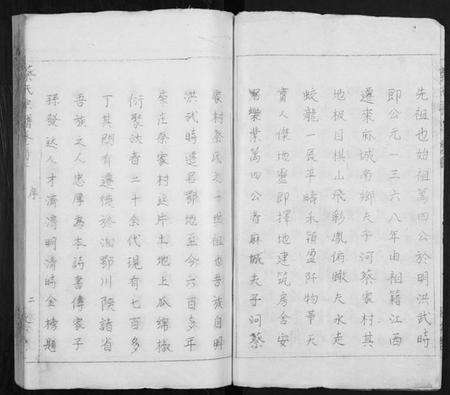 先祖也始祖萬四公於明洪武時
即公元一三六八年由祖籍江西
遷來麻城南鄉夫子河蔡家村其
地极目棋山飛彩鳳俯瞰大水走
蛟龍一辰平疇禾稻盈阡物華天
寶人傑地靈即擇地建筑房舍安
居樂業萬四公者麻城夫子河蔡
家村蔡氏之一世祖也吾族自明
洪武時遷居鄂地至今六百多年
柴庄蔡家村這片土地上瓜綿椒
衍繫後者二十余代現有七百多
丁其間有遷徙於湘鄂川陝諸省
吾族之人忠厚為本詩書傳家子
孫發达人才濟濟明清時金榜題
蔡氏 序 二